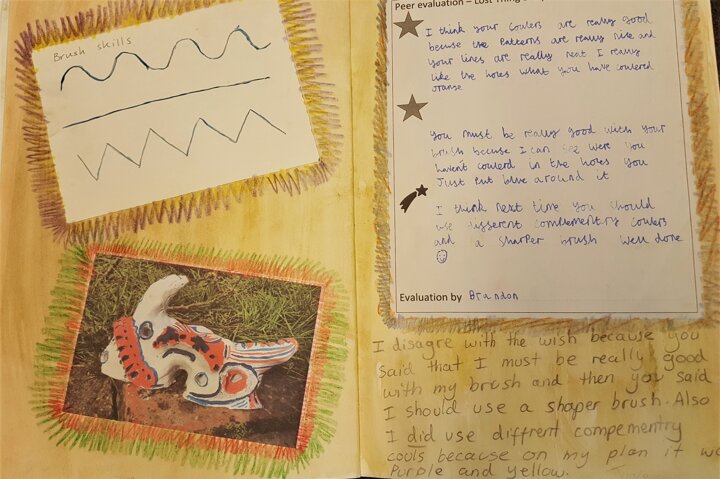 Brush skills
Peer evaluation – Lost Thing
I think your coulers are really good
becuse the Patterns are really nice and
your lines are really neat I really
like the holes what you have coulered
orange
You must be really good with your
brush becuse I can see were you
havent coulerd in the holes you
Just Put blue around it
I think next time you should
use different complementry coulers
and a sharper brush well done
Evaluation by Brandon
I disagre with the wish because you
said that I must be really good
with my brush and then you said
I should use a shaper brush. Also
I did use diffrent compementry
couls because on my plan it
Purple and yellow.